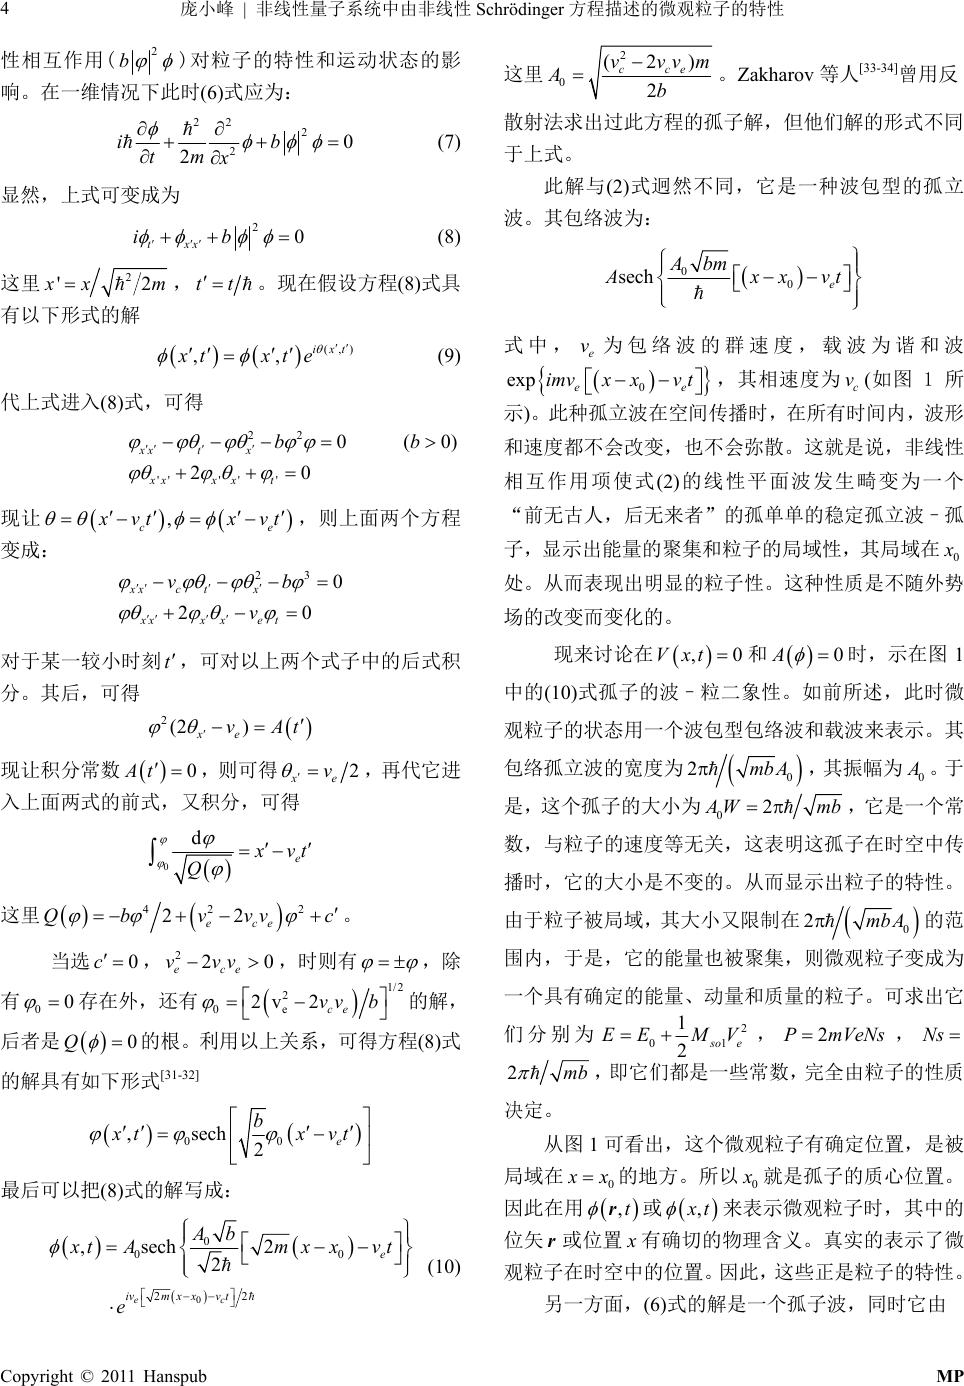 4
庞小峰 | 非线性量子系统中由非线性 Schrödinger 方程描述的微观粒子的特性
性相互作用 ( b|φ|²ϕ ) 对粒子的特性和运动状态的影
响。在一维情况下此时(6)式应为：
iħ ∂ϕ/∂t + ħ²/2m ∂²/∂x² ϕ + b|ϕ|²ϕ = 0 (7)
显然，上式可变成为
iϕ_{t′} + ϕ_{x′x′} + b|ϕ|²ϕ = 0 (8)
这里 x' = x/√(ħ²/2m) ，t′ = t/ħ 。现在假设方程(8)式具
有以下形式的解
ϕ(x′,t′) = ϕ(x′,t′)e^{iθ(x′,t′)} (9)
代上式进入(8)式，可得
φ_{x'x'} − φθ_{t'} − φθ²_{x'} − bφ²φ = 0 (b > 0)
φθ_{x'x'} + 2φ_{x'}θ_{x'} + φ_{t'} = 0
现让 θ = θ(x′ − v_c t′), ϕ = ϕ(x′ − v_e t′) ，则上面两个方程
变成：
φ_{x′x′} − v_cφθ_{t′} − φθ²_{x′} − bφ³ = 0
φθ_{x′x′} + 2φ_{x′}θ_{x′} − v_eφ_t = 0
对于某一较小时刻 t′ ，可对以上两个式子中的后式积
分。其后，可得
φ²(2θ_{x′} − v_e) = A(t′)
现让积分常数 A(t′) = 0 ，则可得 θ_{x′} = v_e/2 ，再代它进
入上面两式的前式，又积分，可得
∫_{φ₀}^{φ} dφ/√Q(φ) = x′ − v_e t′
这里 Q(φ) = −bφ⁴/2 + (v_e² − 2v_c v_e)φ² + c′ 。
当选 c′ = 0 ，v_e² − 2v_c v_e > 0 ，时则有 φ = ±φ ，除
有 φ₀ = 0 存在外，还有 φ₀ = [2(v_e² − 2v_c v_e)/b]^{1/2} 的解，
后者是 Q(ϕ) = 0 的根。利用以上关系，可得方程(8)式
的解具有如下形式[31-32]
φ(x′,t′) = φ₀ sech[√(b/2) φ₀(x′ − v_e t′)]
最后可以把(8)式的解写成：
ϕ(x,t) = A₀ sech{A₀√b/2ħ [√2m(x − x₀) − v_e t]}
· e^{iv_e[√2m(x−x₀)−v_c t]/2ħ} (10)
这里 A₀ = √((v_c² − 2v_c v_e)m/2b) 。Zakharov 等人[33-34]曾用反
散射法求出过此方程的孤子解，但他们解的形式不同
于上式。
此解与(2)式迥然不同，它是一种波包型的孤立
波。其包络波为：
A sech{A₀√bm/ħ [(x − x₀) − v_e t]}
式中， v_e 为包络波的群速度，载波为谐和波
exp{imv_e[(x − x₀) − v_e t]} ，其相速度为 v_c (如图 1 所
示)。此种孤立波在空间传播时，在所有时间内，波形
和速度都不会改变，也不会弥散。这就是说，非线性
相互作用项使式(2)的线性平面波发生畸变为一个
“前无古人，后无来者”的孤单单的稳定孤立波–孤
子，显示出能量的聚集和粒子的局域性，其局域在 x₀
处。从而表现出明显的粒子性。这种性质是不随外势
场的改变而变化的。
现来讨论在 V(x,t) = 0 和 A(ϕ) = 0 时，示在图 1
中的(10)式孤子的波–粒二象性。如前所述，此时微
观粒子的状态用一个波包型包络波和载波来表示。其
包络孤立波的宽度为 2πħ/(√mb A₀) ，其振幅为 A₀ 。于
是，这个孤子的大小为 A₀W = 2πħ/√mb ，它是一个常
数，与粒子的速度等无关，这表明这孤子在时空中传
播时，它的大小是不变的。从而显示出孤子的特性。
由于粒子被局域，其大小又限制在 2πħ/(√mb A₀) 的范
围内，于是，它的能量也被聚集，则微观粒子变成为
一个具有确定的能量、动量和质量的粒子。可求出它
们分别为 E = E₀ + 1/2 M_{sol}V_e² ， P = 2mVeNs ， Ns =
2πħ/√mb ，即它们都是一些常数，完全由粒子的性质
决定。
从图 1 可看出，这个微观粒子有确定位置，是被
局域在 x = x₀ 的地方。所以 x₀ 就是孤子的质心位置。
因此在用 ϕ(r,t) 或 ϕ(x,t) 来表示微观粒子时，其中的
位矢 r 或位置 x 有确切的物理含义。真实的表示了微
观粒子在时空中的位置。因此，这些正是粒子的特性。
另一方面，(6)式的解是一个孤子波，同时它由
Copyright © 2011 Hanspub
MP